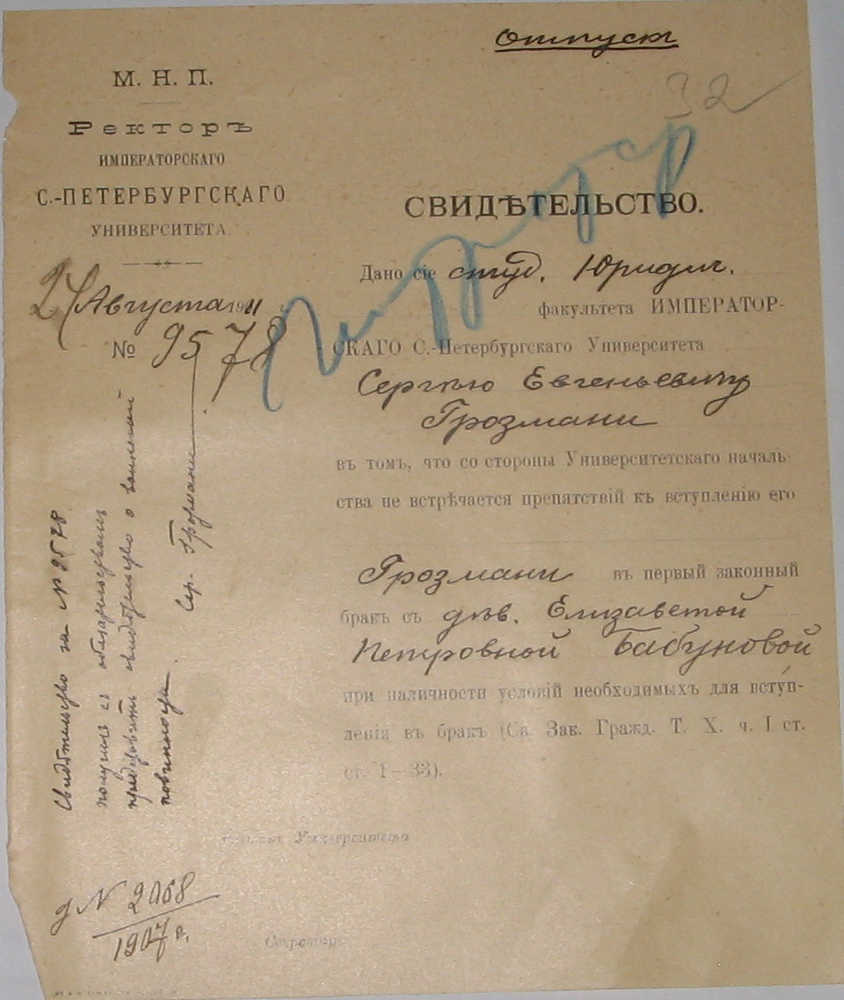 Отпускъ
32
М. Н. П.
Ректоръ
ИМПЕРАТОРСКАГО
С.-ПЕТЕРБУРГСКАГО
УНИВЕРСИТЕТА
Августа 1911
№ 9578
СВИДѢТЕЛЬСТВО.
Дано сіе студ. Юридич.
факультета ИМПЕРАТОР-
СКАГО С.-Петербургскаго Университета
Сергѣю Евгеньевичу
Грозмани
въ томъ, что со стороны Университетскаго началь-
ства не встрѣчается препятствій къ вступленію его
Грозмани въ первый законный
бракъ съ дѣв. Елизаветой
Петровной Бабуновой
при наличности условій необходимыхъ для вступ-
ленія въ бракъ (Св. Зак. Гражд. Т. X. ч. I ст.
ст. 1—33).
Университета
Секретарь
Свидѣтельство за № 9578
получилъ и обязываюсь
представить свидѣтельство о воинской
повинности. Сер. Грозмани
д № 2068
1907 г.